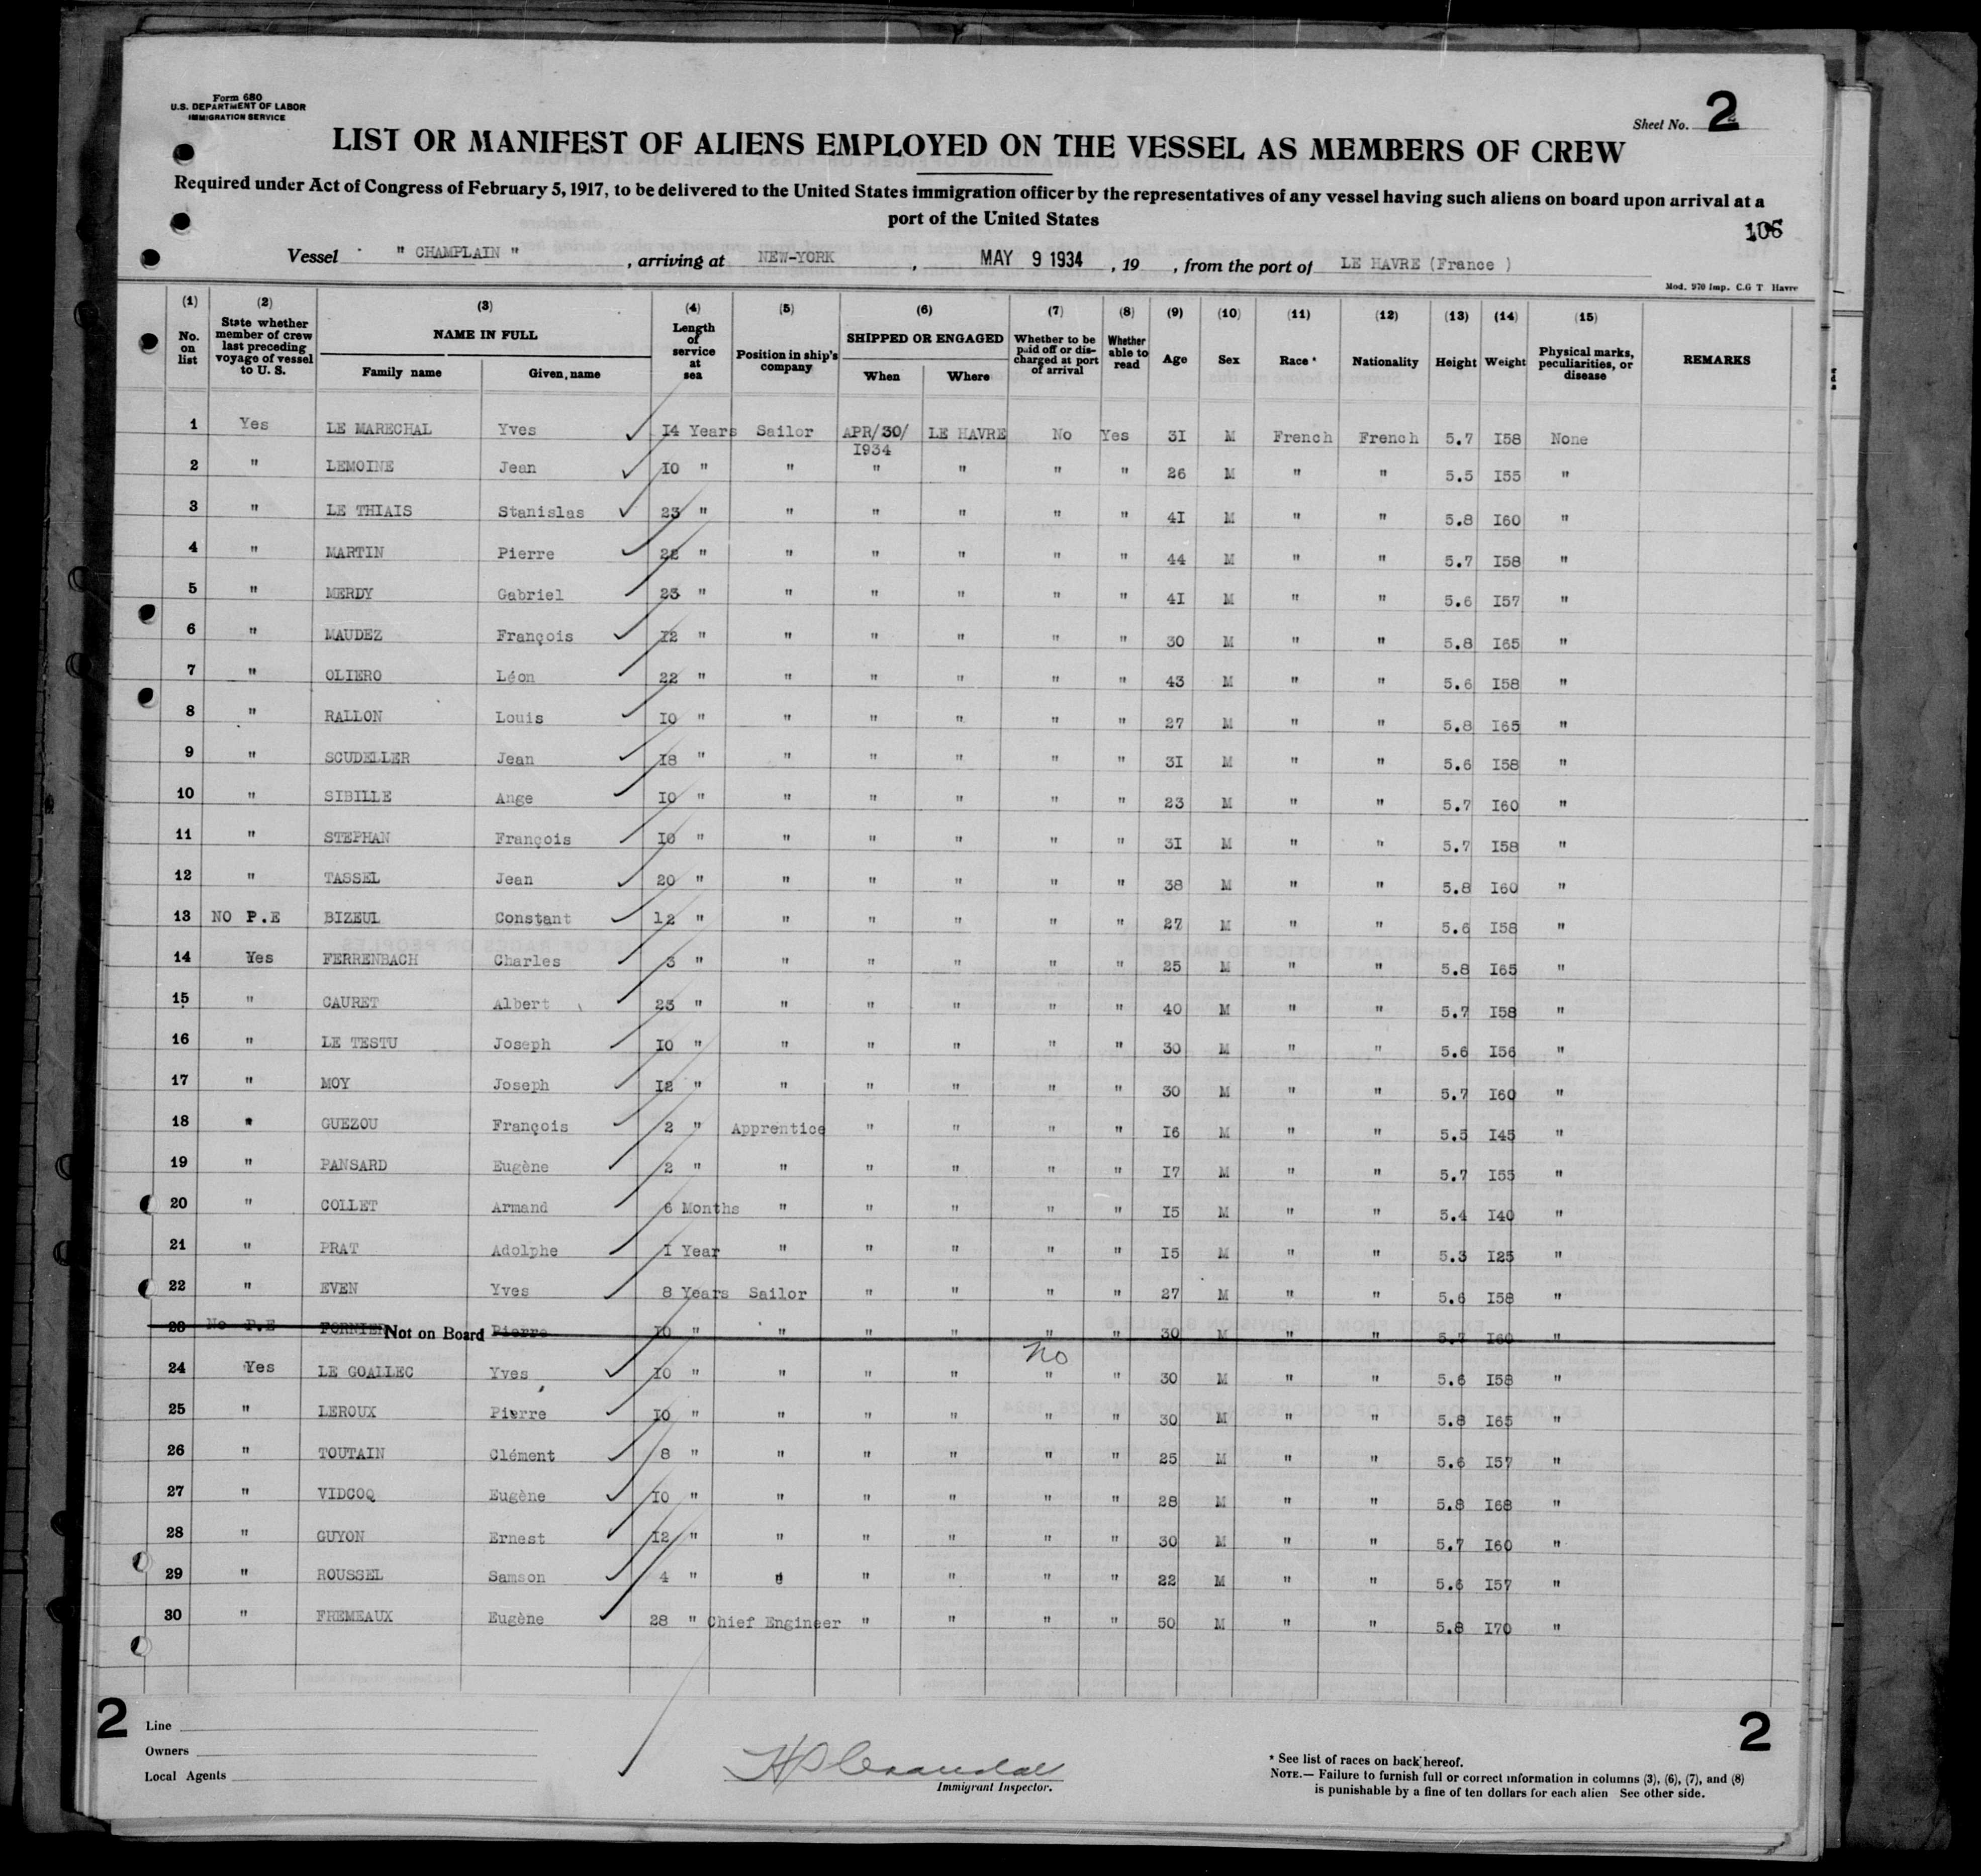 Form 680
U.S. DEPARTMENT OF LABOR
IMMIGRATION SERVICE
Sheet No. 2
LIST OR MANIFEST OF ALIENS EMPLOYED ON THE VESSEL AS MEMBERS OF CREW
Required under Act of Congress of February 5, 1917, to be delivered to the United States immigration officer by the representatives of any vessel having such aliens on board upon arrival at a
port of the United States
106
Vessel " CHAMPLAIN " , arriving at NEW-YORK , MAY 9 1934 , 19 , from the port of LE HAVRE (France )
Mod. 970 Imp. C.G T Havre
(1) (2) (3) (4) (5) (6) (7) (8) (9) (10) (11) (12) (13) (14) (15)
No. on list State whether member of crew last preceding voyage of vessel to U. S. NAME IN FULL Family name Given name Length of service at sea Position in ship's company SHIPPED OR ENGAGED When Where Whether to be paid off or discharged at port of arrival Whether able to read Age Sex Race * Nationality Height Weight Physical marks, peculiarities, or disease REMARKS
1 Yes LE MARECHAL Yves 14 Years Sailor APR/30/ I934 LE HAVRE No Yes 3I M French French 5.7 I58 None
2 " LEMOINE Jean I0 " " " " " " 26 M " " 5.5 I55 "
3 " LE THIAIS Stanislas 23 " " " " " " 4I M " " 5.8 I60 "
4 " MARTIN Pierre 22 " " " " " " 44 M " " 5.7 I58 "
5 " MERDY Gabriel 23 " " " " " " 4I M " " 5.6 I57 "
6 " MAUDEZ François I2 " " " " " " 30 M " " 5.8 I65 "
7 " OLIERO Léon 22 " " " " " " 43 M " " 5.6 I58 "
8 " RALLON Louis I0 " " " " " " 27 M " " 5.8 I65 "
9 " SCUDELLER Jean I8 " " " " " " 3I M " " 5.6 I58 "
10 " SIBILLE Ange I0 " " " " " " 23 M " " 5.7 I60 "
11 " STEPHAN François I0 " " " " " " 3I M " " 5.7 I58 "
12 " TASSEL Jean 20 " " " " " " 38 M " " 5.8 I60 "
13 NO P.E BIZEUL Constant 12 " " " " " " 27 M " " 5.6 I58 "
14 Yes FERRENBACH Charles 3 " " " " " " 25 M " " 5.8 I65 "
15 " CAURET Albert 23 " " " " " " 40 M " " 5.7 I58 "
16 " LE TESTU Joseph I0 " " " " " " 30 M " " 5.6 I56 "
17 " MOY Joseph I2 " " " " " " 30 M " " 5.7 I60 "
18 " GUEZOU François 2 " Apprentice " " " " I6 M " " 5.5 I45 "
19 " PANSARD Eugène 2 " " " " " " I7 M " " 5.7 I55 "
20 " COLLET Armand 6 Months " " " " " I5 M " " 5.4 I40 "
21 " PRAT Adolphe I Year " " " " " I5 M " " 5.3 I25 "
22 " EVEN Yves 8 Years Sailor " " " " 27 M " " 5.6 I58 "
23 No P.E FORNIER Not on Board Pierre I0 " " " " " " 30 M " " 5.7 I60 "
No
24 Yes LE GOALLEC Yves I0 " " " " " " 30 M " " 5.6 I58 "
25 " LEROUX Pierre I0 " " " " " " 30 M " " 5.8 I65 "
26 " TOUTAIN Clément 8 " " " " " " 25 M " " 5.6 I57 "
27 " VIDCOQ Eugène I0 " " " " " " 28 M " " 5.8 I68 "
28 " GUYON Ernest I2 " " " " " " 30 M " " 5.7 I60 "
29 " ROUSSEL Samson 4 " " " " " " 22 M " " 5.6 I57 "
30 " FREMEAUX Eugène 28 " Chief Engineer " " " " 50 M " " 5.8 I70 "
2
Line
Owners
Local Agents
Immigrant Inspector.
* See list of races on back hereof.
NOTE.— Failure to furnish full or correct information in columns (3), (6), (7), and (8)
is punishable by a fine of ten dollars for each alien See other side.
2